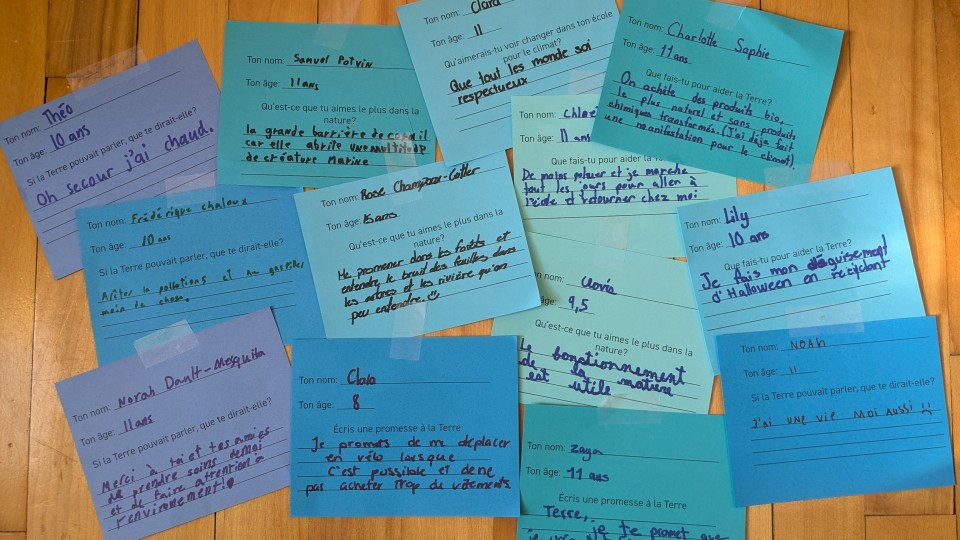 Ton nom: Théo
Ton âge: 10 ans
Si la Terre pouvait parler, que te dirait-elle?
Oh secour j'ai chaud.
Ton nom: Samuel Potvin
Ton âge: 11 ans
Qu'est-ce que tu aimes le plus dans la
nature?
la grande barrière de
car elle abrite une multitude
de créature marine
Ton nom: Clara
Ton âge: 11
Qu'aimerais-tu voir changer dans ton école
pour le climat?
Que tout les monde soi
respectueux
Ton nom: Charlotte Sophie
Ton âge: 11 ans
Que fais-tu pour aider la Terre?
On achète des produits bio,
le plus naturel et sans produits
chimiques transformés. (J'ai déja fait
une manifestation pour le climat)
Ton nom: Chloé
Ton âge: 11 ans
Que fais-tu pour aider la
De moins poluer et je marche
tout les jours pour aller à
l'école et retourner chez moi
Ton nom: Frédérique chaloux
Ton âge: 10 ans
Si la Terre pouvait parler, que te dirait-elle?
Arêter la pollutions et gaspiller
moin de chose.
Ton nom: Rose
Ton âge: 15 ans
Qu'est-ce que tu aimes le plus dans la
nature?
Me promener dans les forêts et
entendre le bruit des feuilles dans
les arbres et les rivière qu'on
peu entendre.
Ton nom: Lily
Ton âge: 10 ans
Que fais-tu pour aider la Terre?
Je fais mon déguisement
d'Halloween en recyclant
nom: Clovis
âge: 9,5
Qu'est-ce que tu aimes le plus dans la
nature?
Le fonctionnement
de la matière
est utile
Ton nom: Norah Dault-Mesquita
Ton âge: 11 ans
Si la Terre pouvait parler, que te dirait-elle?
Merci à toi et tes amies
de prendre soins de moi
et de faire attention à
l'environement!
Ton nom: Clara
Ton âge: 8
Écris une promesse à la Terre
Je promets de me déplacer
en vélo lorsque
c'est possible et de ne
pas acheter trop de vêtements.
Ton nom: Noah
Ton âge: 11
Si la Terre pouvait parler, que te dirait-elle?
J'ai une vie moi aussi !!
Ton nom: zaya
Ton âge: 11 ans
Écris une promesse à la Terre
Terre, je te promet que